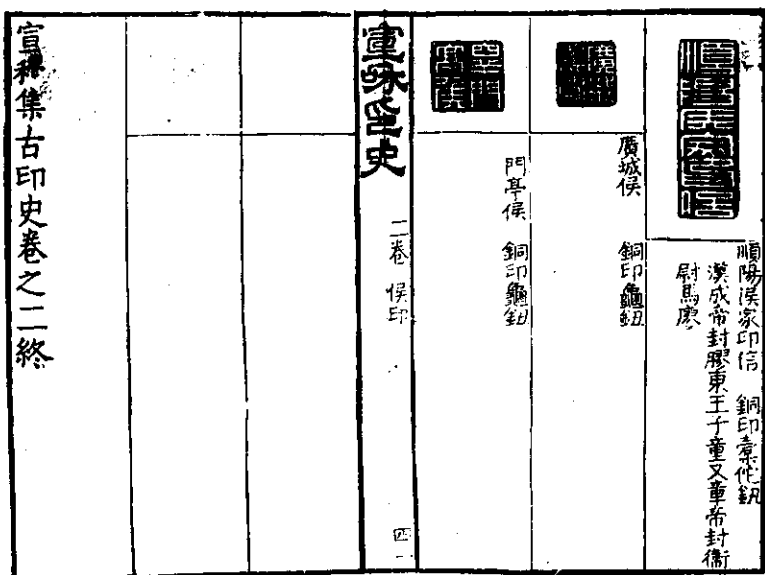 順陽侯家印信　銅印橐佗鈕
漢成帝封膠東王子童又章帝封衛
尉馬廖
廣城侯　銅印龜鈕
門亭侯　銅印龜鈕
宣和印史
二卷　侯印
四一
宣和集古印史卷之二終